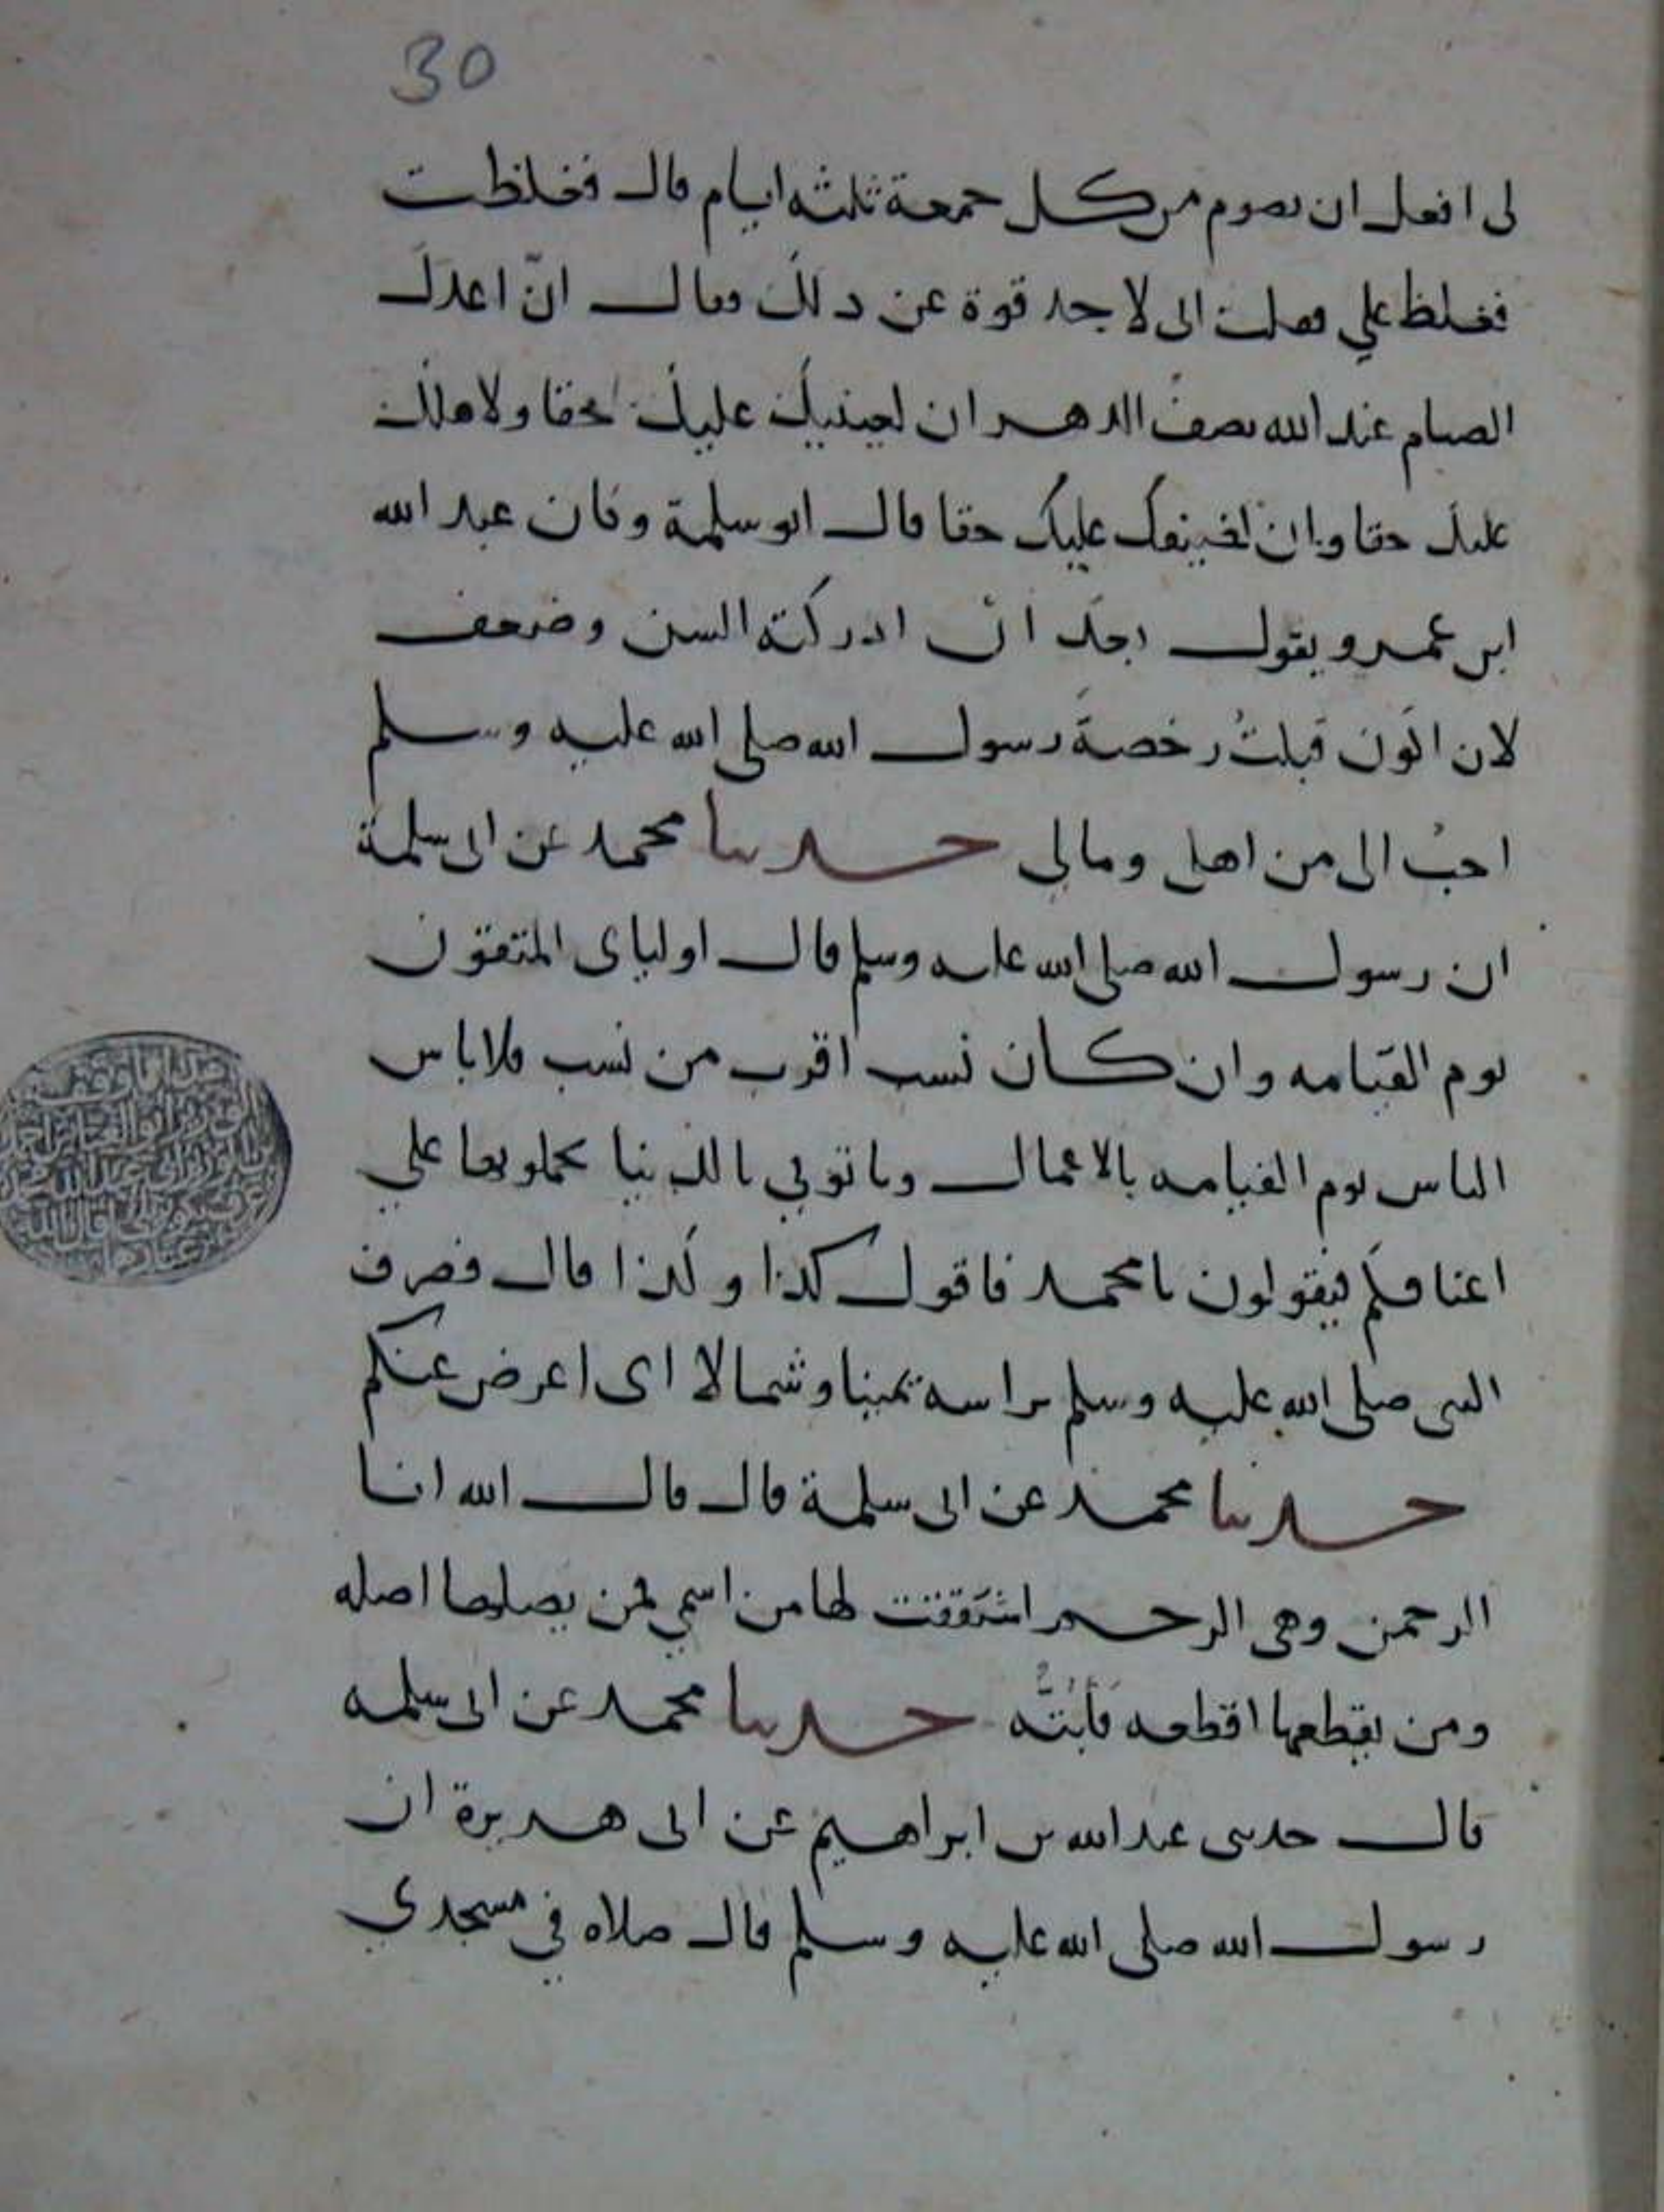 30
لى افعل ان تصوم من كل جمعة ثلثه ايام قال فغلظت
فغلظ علي فقلت انى لاجد قوة عن ذلك فقال انّ اعدل
الصيام عند الله نصف الدهر ان لعينيك عليك حقا ولاهلك
عليك حقا وان لضيفك عليك حقا قال ابو سلمة وكان عبد الله
ابن عمرو يقول بعد ان ادركته السن وضعف
لان اكون قبلتُ رخصةَ رسول الله صلى الله عليه وسلم
احبُ الى من اهلى ومالي حدثنا محمد عن ابى سلمة
ان رسول الله صلى الله عليه وسلم قال اولياى المتقون
يوم القيامه وان كان نسب اقرب من نسب فلا ياتى
الناس يوم القيامه بالاعمال وتاتوني بالدنيا تحملونها علي
اعناقكم فيقولون يا محمد فاقول كذا وكذا قال فصرف
النبى صلى الله عليه وسلم براسه يمينا وشمالا اى اعرض عنكم
حدثنا محمد عن ابى سلمة قال قال الله انا
الرحمن وهى الرحم اشتققت لها من اسمي فمن يصلها اصله
ومن يقطعها اقطعه فأبتُّه حدثنا محمد عن ابى سلمه
قال حدثنى عبد الله بن ابراهيم عن ابى هريرة ان
رسول الله صلى الله عليه وسلم قال صلاه في مسجدي